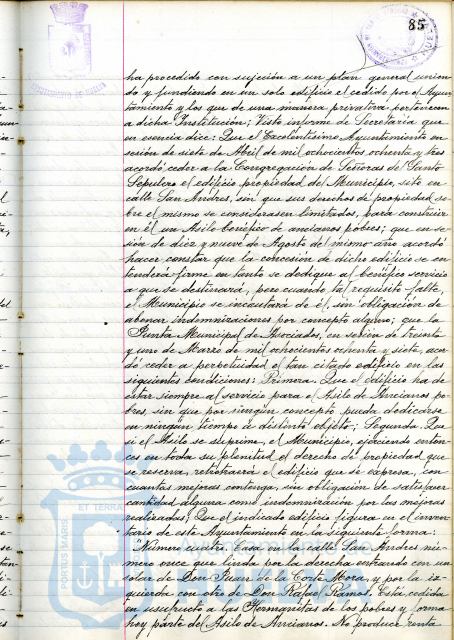 85
ha procedido con sujeción a un plan general unien
do y fundiendo en un solo edificio el cedido por el Ayun
tamiento y los que de una manera privativa pertenecen
a dicha Institución; Visto informe de Secretaría que
en esencia dice: Que el Excelentísimo Ayuntamiento en
sesión de siete de Abril de mil ochocientos ochenta y tres
acordó ceder a la Congregación de Señoras del Santo
Sepulcro el edificio propiedad del Municipio, sito en
calle San Andrés, sin que sus derechos de propiedad so
bre el mismo se considerasen limitados, para construir
en él un Asilo benéfico de ancianos pobres; que en se
sión de diez y nueve de Agosto del mismo año acordó
hacer constar que la concesión de dicho edificio se en
tenderá firme en tanto se dedique al benéfico servicio
a que se destinará, pero cuando tal requisito falte,
el Municipio se incautará de él, sin obligación de
abonar indemnizaciones por concepto alguno; que la
Junta Municipal de Asociados, en sesión de treinta
y uno de Marzo de mil ochocientos ochenta y siete, acor
dó ceder a perpetuidad el tan citado edificio en las
siguientes condiciones: Primera. Que el edificio ha de
estar siempre al servicio para el Asilo de Ancianos po
bres, sin que por ningún concepto pueda dedicarse
en ningún tiempo a distinto objeto; Segunda. Que
si el Asilo se suprime, el Municipio, ejerciendo enton
ces en toda su plenitud el derecho de propiedad que
se reserva, retrotraerá el edificio que se expresa, con
cuantas mejoras contenga, sin obligación de satisfacer
cantidad alguna como indemnización por las mejoras
realizadas; Que el indicado edificio figura en el inven
tario de este Ayuntamiento en la siguiente forma:
"Número cuatro. Casa en la calle San Andres nú
mero once que linda por la derecha entrando con un
solar de Don Juan de la Corte Mora, y por la iz
quierda con otro de Don Rafael Ramos. Está cedida
en usufructo a las Hermanitas de los pobres y forma
hoy parte del Asilo de Ancianos. No produce renta
PORTUS MARIS ET TERRAE